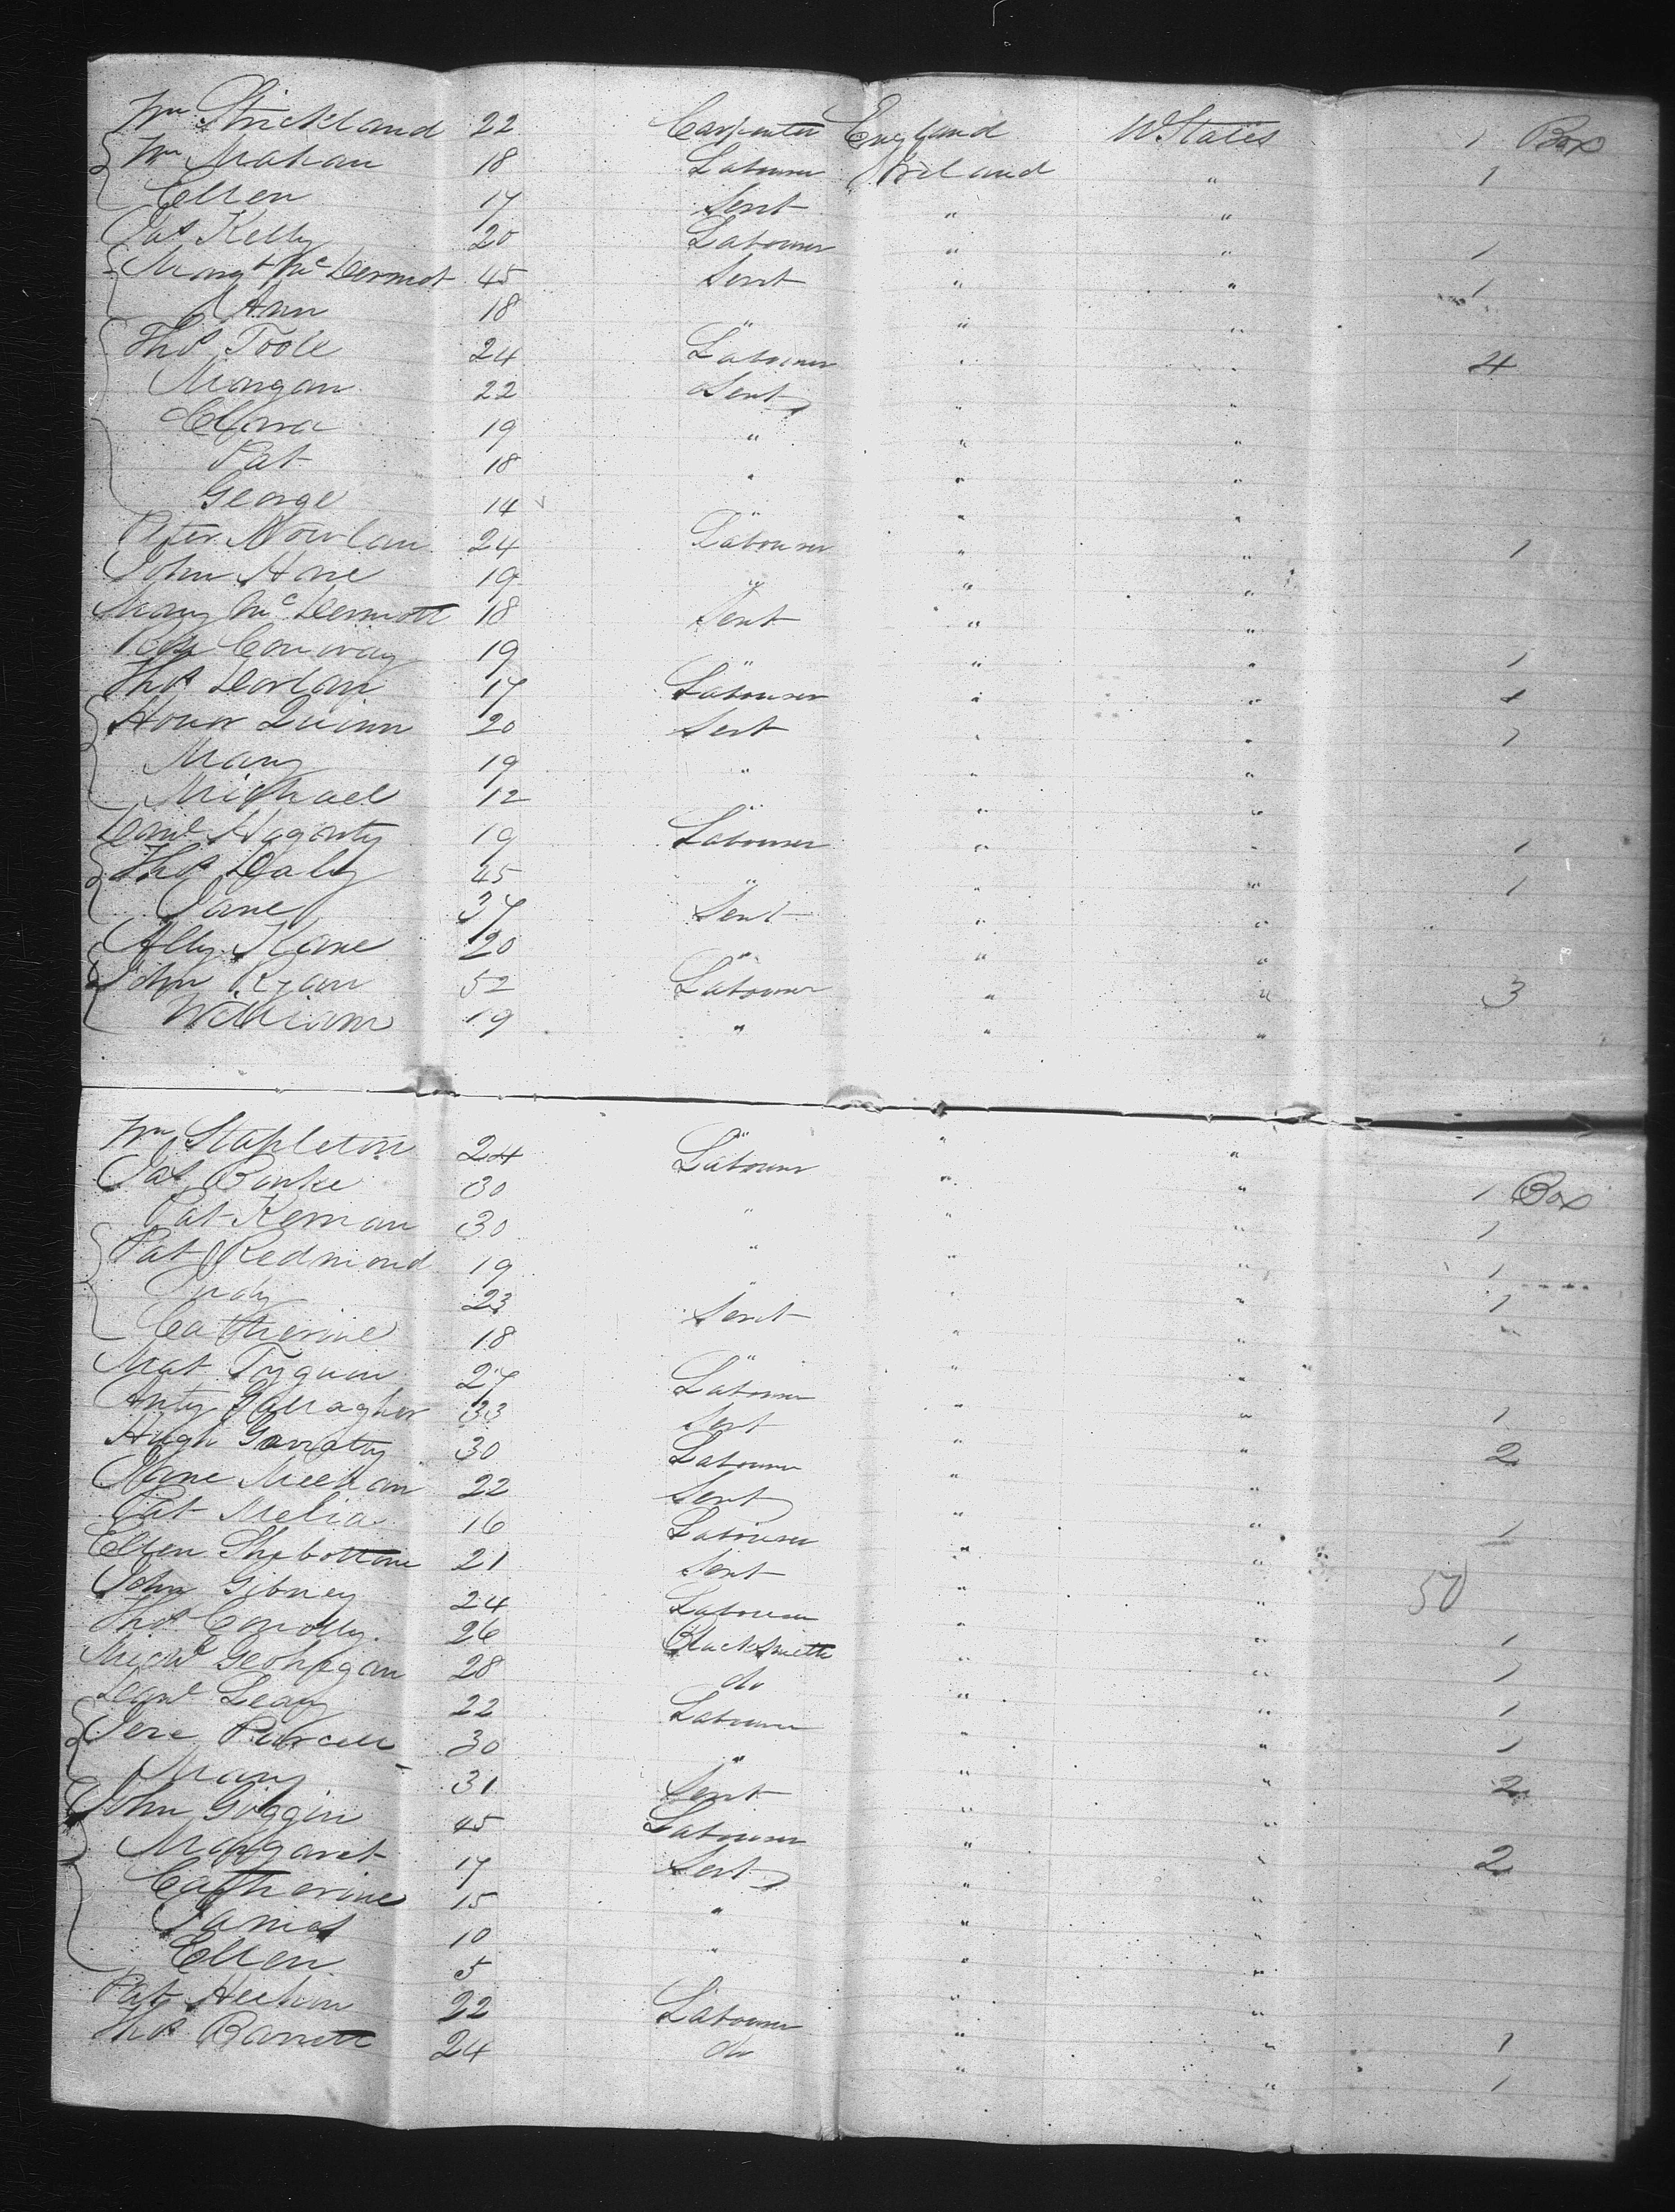 Wm Strickland 22 Carpenter England U. States 1 Box
Wm Mahan 18 Labourer Ireland " 1
Ellen 17 Servt " "
Jas Kelly 20 Labourer " " 1
Margt McDermot 45 Servt " " 1
Ann 18 " " "
Thos Toole 24 Labourer " " 4
Morgan 22 Servt " "
19 " " "
Pat 18 " " "
George 14 " " "
Peter Nowlan 24 Labourer " " 1
John Hore 19 " " "
Mary McDermott 18 Servt " "
Conway 19 " " " 1
Thos Dorlan 17 Labourer " " 1
Honor Quinn 20 Servt " " 1
Mary 19 " " "
Michael 12 " "
Danl Hagerty 19 Labourer " " 1
Thos Daly 45 " " " 1
Jane 37 Servt " "
Ally Kane 20 " " "
John Ryan 52 Labourer " " 3
William 19 " " "
Wm Stapleton 24 Labourer " "
Jas Burke 30 " " " 1 Box
Pat Kernan 30 " " " 1
Pat Redmond 19 " " 1
Judy 23 Servt " " 1
Catherine 18 " " "
Mat Tyguin 27 Labourer " "
Anty Gallagher 33 Servt " " 1
Hugh Garratty 30 Labourer " " 2
Jane Meehan 22 Servt " "
Pat Melia 16 Labourer " " 1
Ellen Shobottom 21 Servt " "
John Gibney 24 Labourer " " 50
Thos Conolly 26 Blacksmith " " 1
Michl Geohegan 28 do " " 1
Danl Leary 22 Labourer " " 1
Jere Purcell 30 " " " 1
Mary 31 Servt " " 2
John Goggin 45 Labourer " "
Margaret 17 Servt " " 2
Catherine 15 " " "
James 10 " " "
Ellen 5 " "
Pat Heehan 22 Labourer " " 1
Thos Barrett 24 do " " 1